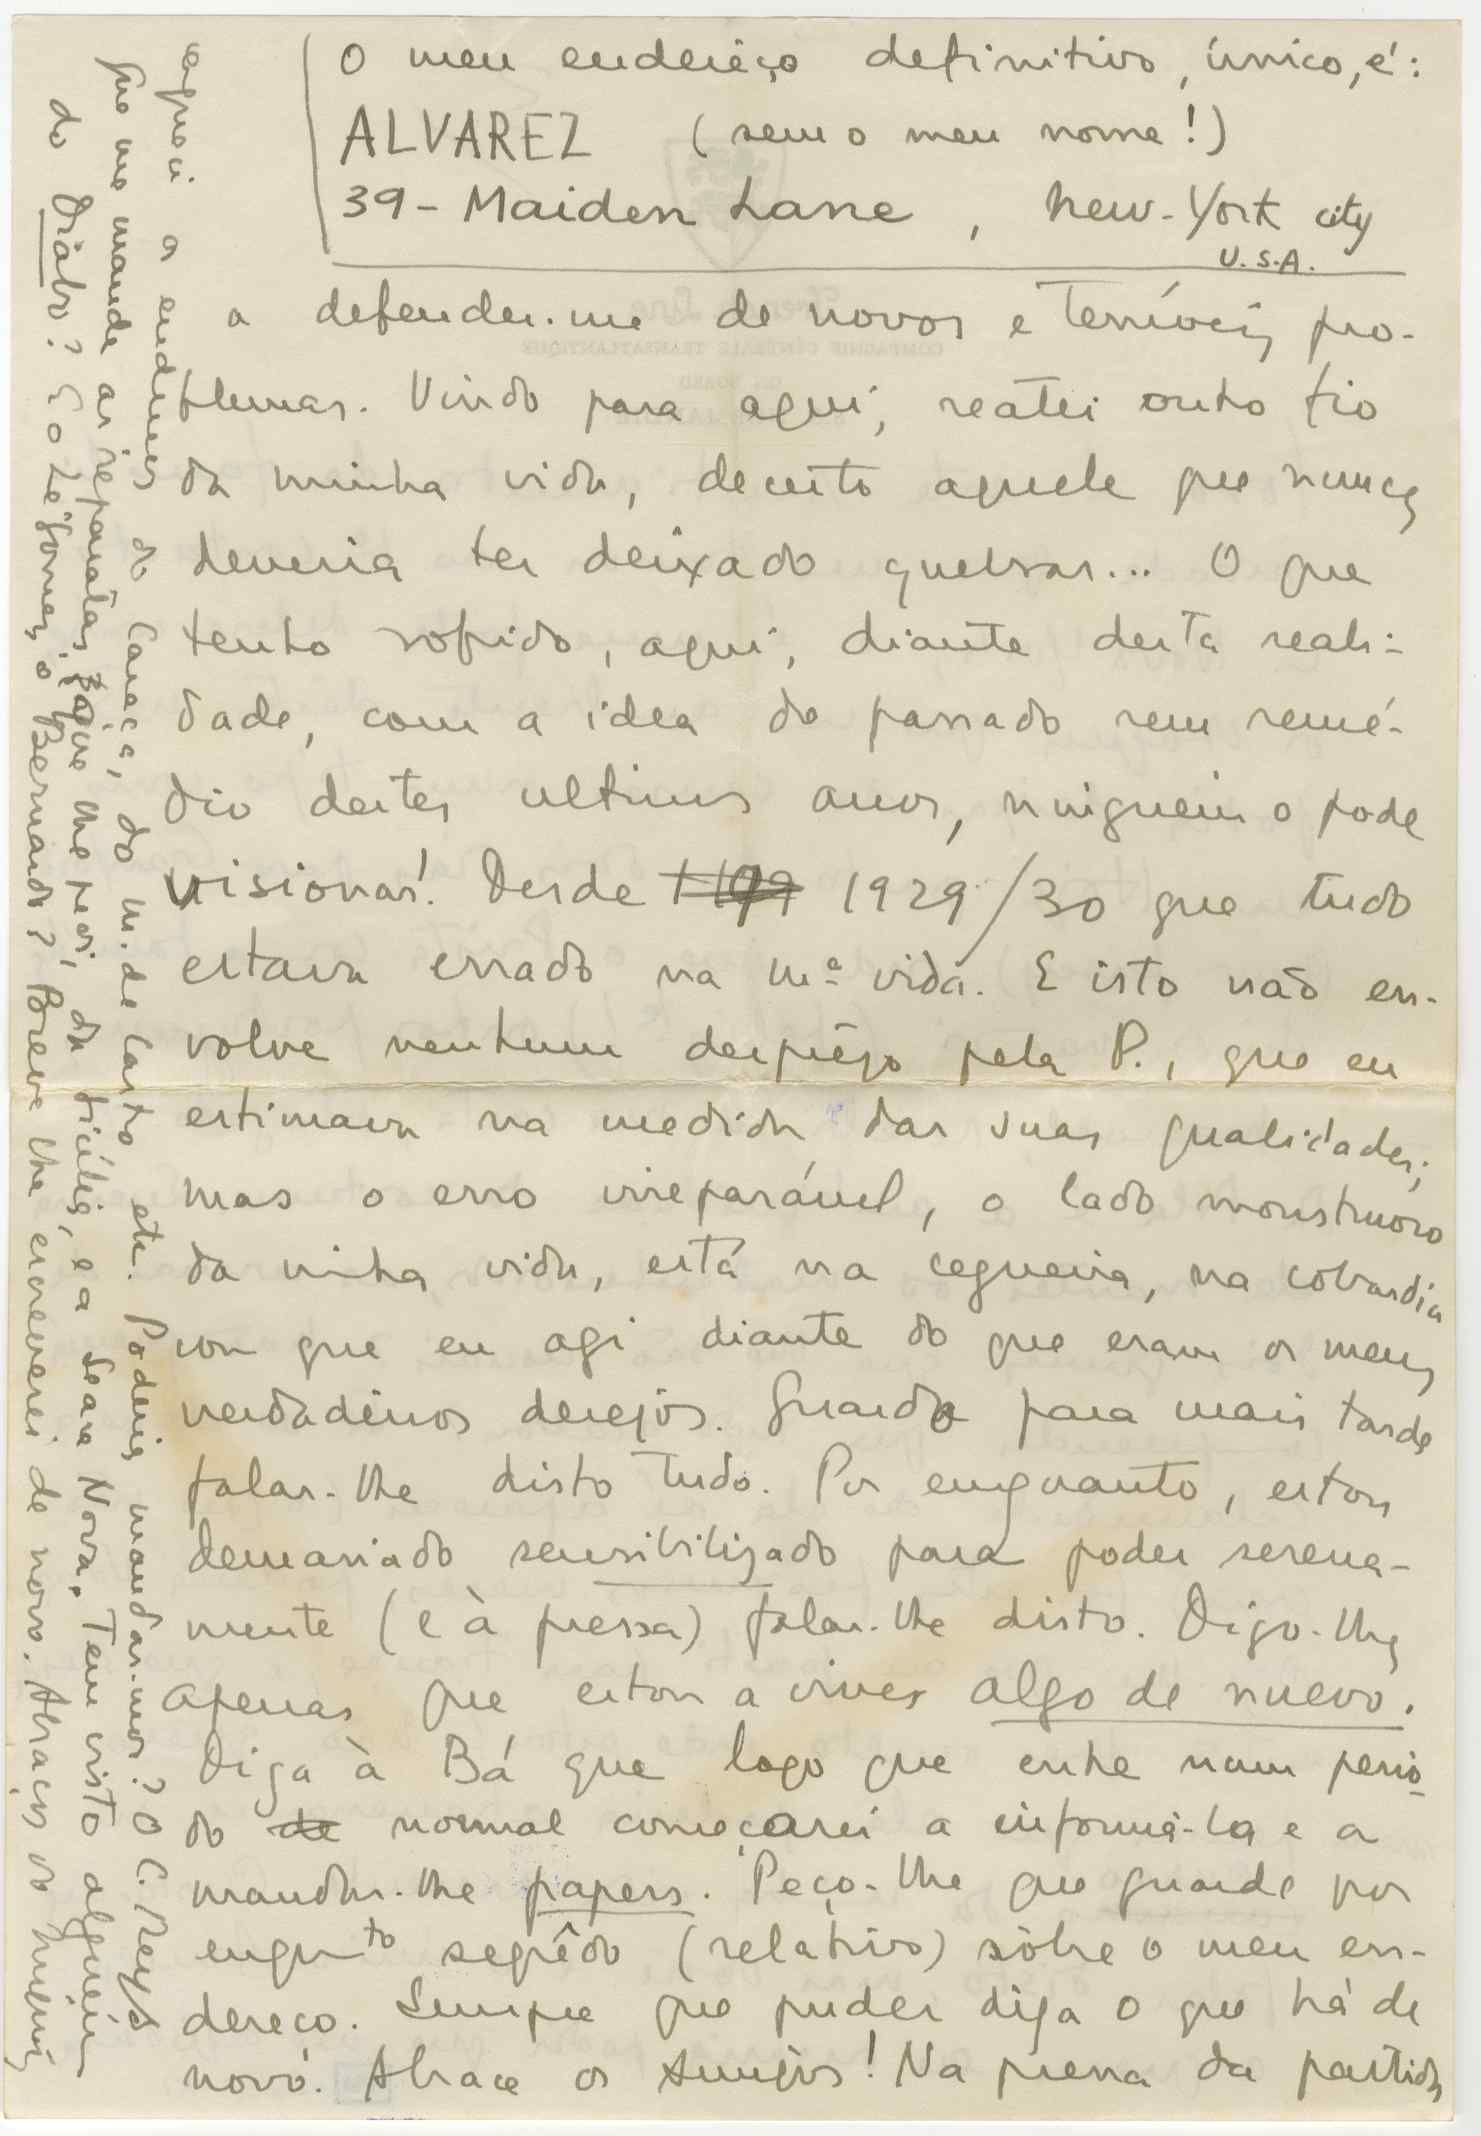 O meu enderêço definitivo, único, é:
ALVAREZ (sem o meu nome!)
39 - Maiden Lane, New-York city
U.S.A.
a defender-me de novos e terríveis pro-
blemas. Vindo para aqui, reatei outro fio
da minha vida, decerto aquele que nunca
deveria ter deixado quebrar... O que
tenho sofrido, aqui, diante desta reali-
dade, com a idea do passado sem remé-
dio destes ultimos anos, ninguem o pode
visionar! Desde 1929/30 que tudo
estava errado na mª vida. E isto não en-
volve nenhum desprêzo pela P., que eu
estimava na medida das suas qualidades;
mas o erro irreparável, o lado monstruoso
da minha vida, está na cegueira, na cobardia
com que eu agi diante do que eram os meus
verdadeiros desejos. Guardo para mais tarde
falar-lhe disto tudo. Por enquanto, estou
demasiado sensibilizado para poder serena-
mente (e à pressa) falar-lhe disto. Digo-lhe
apenas que estou a viver algo de nuevo.
Diga à Bá que logo que entre num perío-
do de normal começarei a informá-la e a
mandar-lhe papers. Peço-lhe que guarde por
enquto segrêdo (relativo) sôbre o meu en-
dereço. Sempre que puder diga o que há de
novo. Abrace os Amigos! Na pressa da partida
esqueci os endereços do Caraça, do M. de Castro etc. Poderia mandar-mos? O C. Reys
que me mande as separatas que lhe pedi, da Ficália, e a Seara Nova. Tem visto alguém
do Diabo? E o Zé Gomes, o Bernardo? Breve lhe escreverei de novo. Abraços do